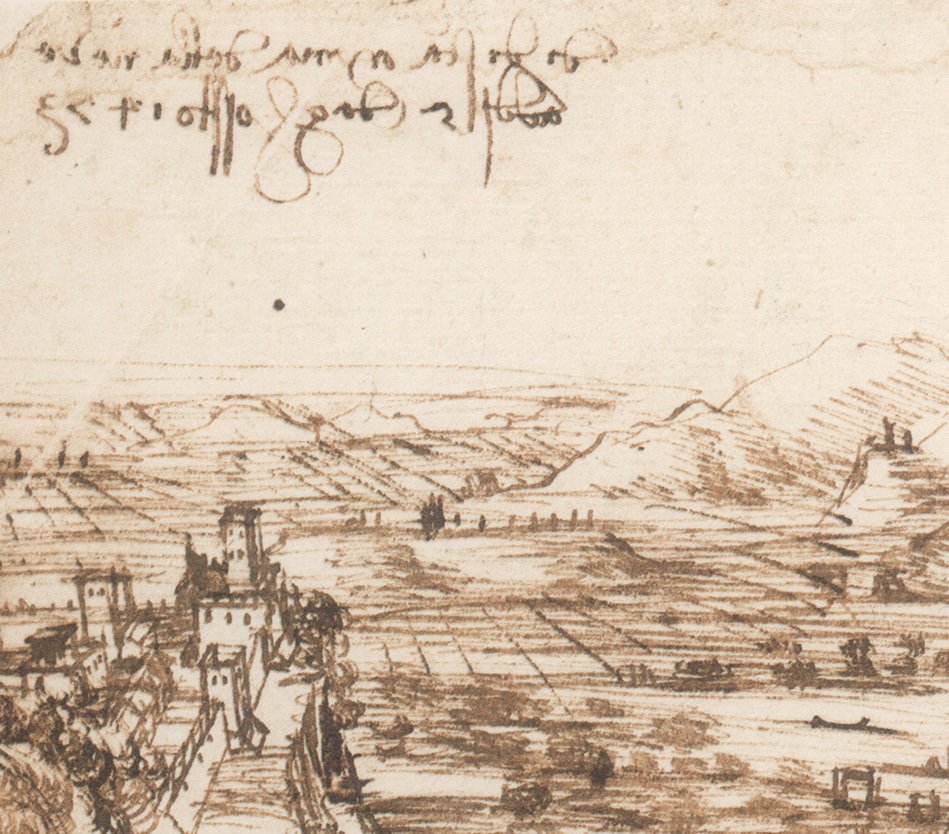 dì di sta maria della neve
addj 5 daghossto 1473